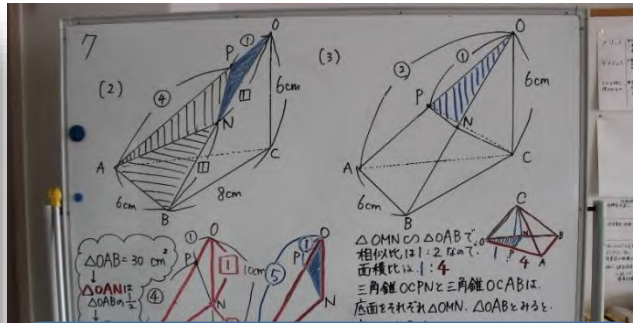 7
(2)
O
P
①
④
1
1
N
6cm
A
C
6cm
B
8cm
(3)
O
②
①
P
N
6cm
A
C
6cm
B
△OAB=30 cm²
↓
△OANは
△OABの1/2
①
O
P
1
10cm
④
N
⑤
O
①
P
N
△OMN∽△OABで
相似比は1:2なので、
面積比は1:4
三角錐OCPNと三角錐OCABは、
底面をそれぞれ△OMN、△OABとみると、
C
O
B
1
P
4
A